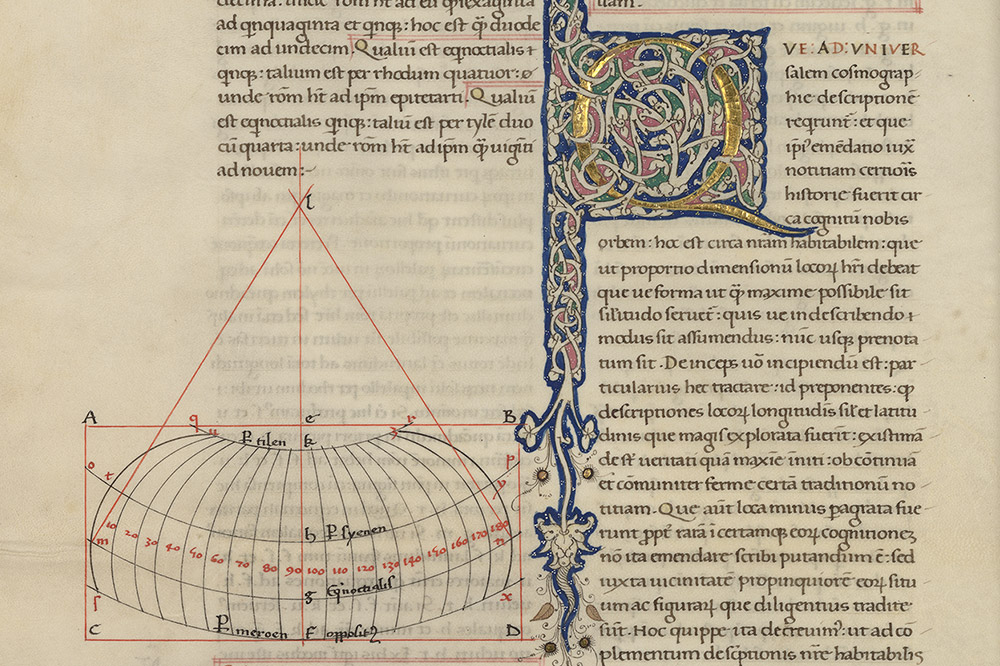 ad qnquaginta et qnqȝ: hoc est ꝙ duode
cim ad undecim. Qualiũ est eqnoctialis
qnqȝ: talium est per rhodum quatuor:
unde rõm hẽt ad ipm epitetarti. Qualiũ
est eqnoctialis qnqȝ: taliũ est per tylẽ duo
cũ quarta: unde rõm hẽt ad ipm ꝙ uigĩti
ad nouem:-
l
A q e r B
u ꝑ tilen k z
o t p y
h ꝑ syenen
m 10 20 30 40 50 60 70 80 90 100 110 120 130 140 150 160 170 180 n
g Eqnoctialis
s x
ꝑ meroen f oppositȝ
C D
VE: AD: VNIVER
salem cosmograp
hie descriptionẽ
reqrunt: et que
ipĩ emẽdatio uix
notitiam certiõis
historie fuerit cir
ca cognitũ nobis
orbem: hoc est circa nr̃am habitabilem: que
ut proportio dimensionũ locoꝝ hr̃i debeat
que ue forma ut ꝙ maxime possibile sit
silitudo seruet: quis ue in describendo
modus sit assumendus: nũc usqȝ prenota
tum sit. Deinceps uõ incipiendũ est: par
ticularius hec tractare: id preponentes: ꝙ
descriptiones locoꝝ longitudĩs sil et latitu
dinis que magis explorata fuerit: existimã
de st̃ ueritati quã maxĩe initi: ob cõtinuã
et cõmuniter ferme certã traditionũ no
titiam. Que aũt loca minus pagrata fue
runt ꝓpt̃ rara ĩ certamqȝ eoꝝ cognitionez
nõ ita emendare scribi putandum ẽ: sed
iuxta uicinitatẽ propinquiorẽ eoꝝ situ
um ac figuraꝝ que diligentius tradite
sũt. Hoc quippe ita decreuĩ: ut ad cõ
plementum descptionis nr̃e habitabilis